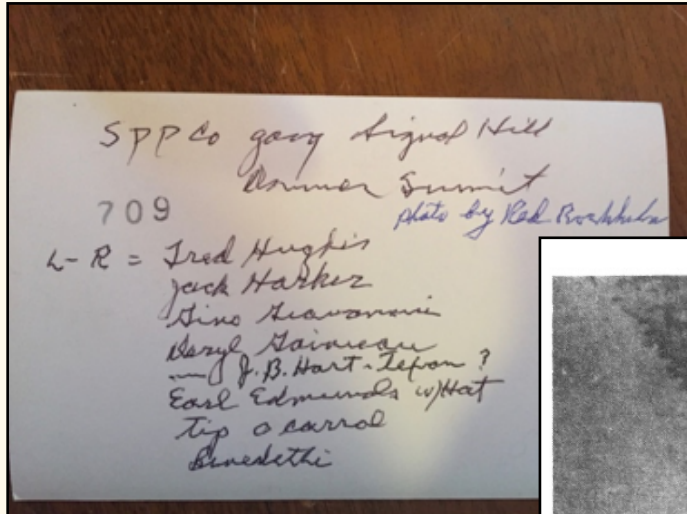 SPP Co gang Signal Hill
Donner Summit
709
photo by Red
L-R = Fred Hughes
Jack Harker
Gino
Deryl
J. B. Hart - Tejon ?
Earl Edmunds w/Hat
tip o carrol
Benedethi